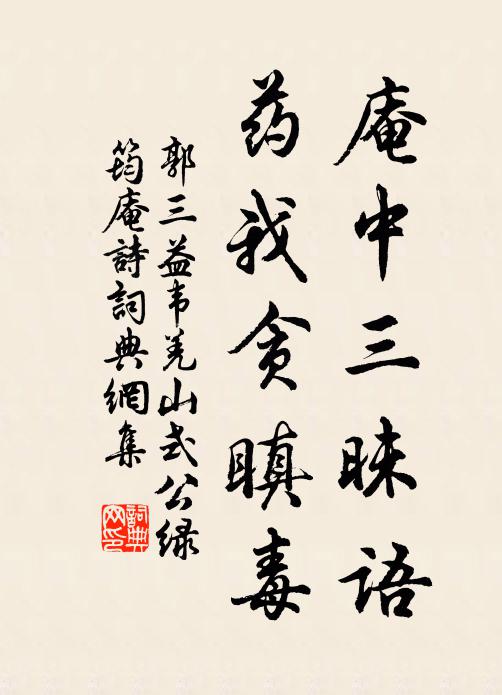 庵中三昧语
药我贪瞋毒
郭三益韦羌山式公绿
筠庵詩詞典網集
詞典
网印